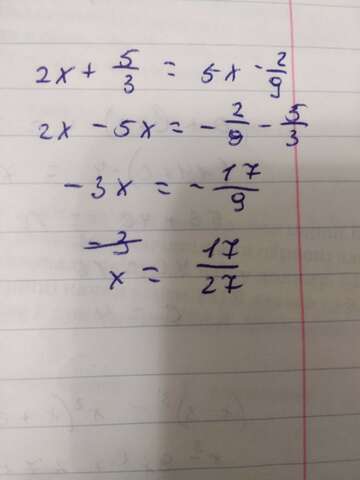 2x + 5/3 = 5x - 2/9
2x - 5x = - 2/9 - 5/3
- 3x = - 17/9
x = 17/27